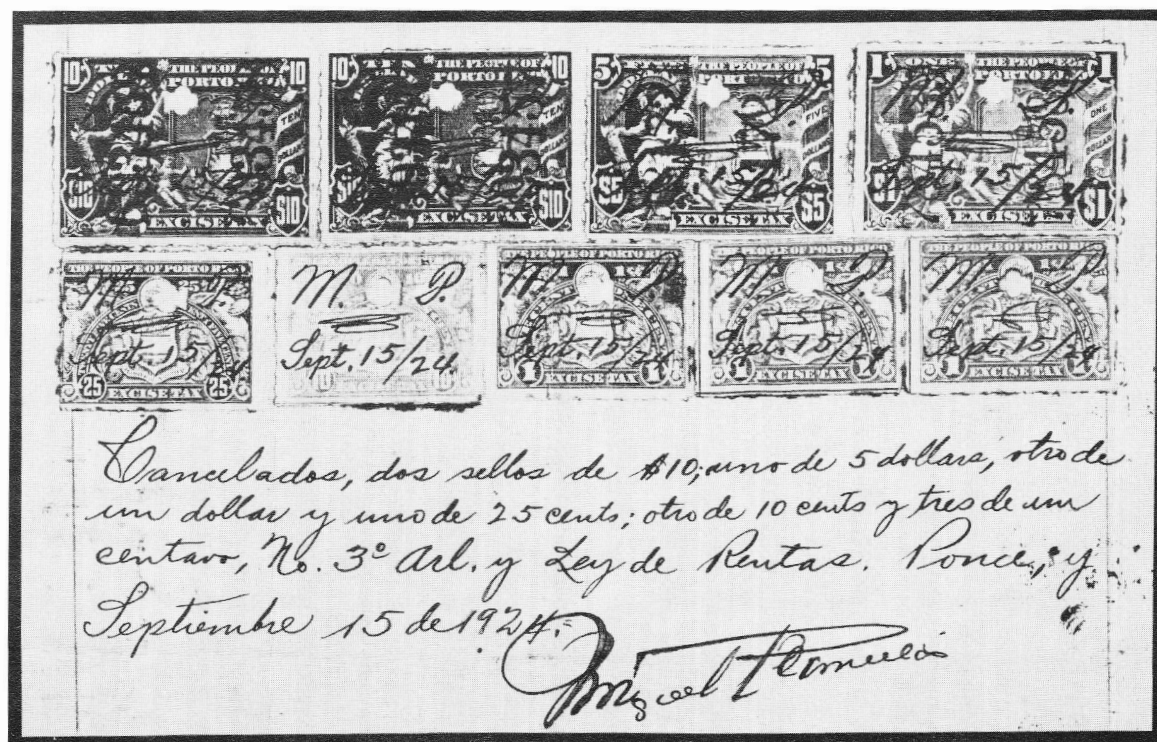 10 TEN THE PEOPLE OF 10
PORTO RICO
TEN DOLLARS
$10 EXCISE TAX $10
10 TEN THE PEOPLE OF 10
PORTO RICO
TEN DOLLARS
$10 EXCISE TAX $10
5 FIVE THE PEOPLE OF 5
PORTO RICO
FIVE DOLLARS
$5 EXCISE TAX $5
Sept. 15/24
1 ONE THE PEOPLE OF 1
PORTO RICO
ONE DOLLAR
$1 EXCISE TAX $1
M. P.
Sept. 15/24
THE PEOPLE OF PORTO RICO
M. P.
Sept. 15/24
25 EXCISE TAX 25
M. P.
Sept. 15/24.
10 10
THE PEOPLE OF PORTO RICO
1 1
M. P.
Sept. 15/24
1 EXCISE TAX 1
THE PEOPLE OF PORTO RICO
1 1
M. P.
Sept. 15/24
1 EXCISE TAX 1
THE PEOPLE OF PORTO RICO
M. P.
Sept. 15/24
1 EXCISE TAX 1
Cancelados, dos sellos de $10; uno de 5 dollars, otro de
un dollar y uno de 25 cents; otro de 10 cents y tres de un
centavo, No. 3º Arl. y Ley de Rentas. Ponce, y
Septiembre 15 de 1924.
Miguel